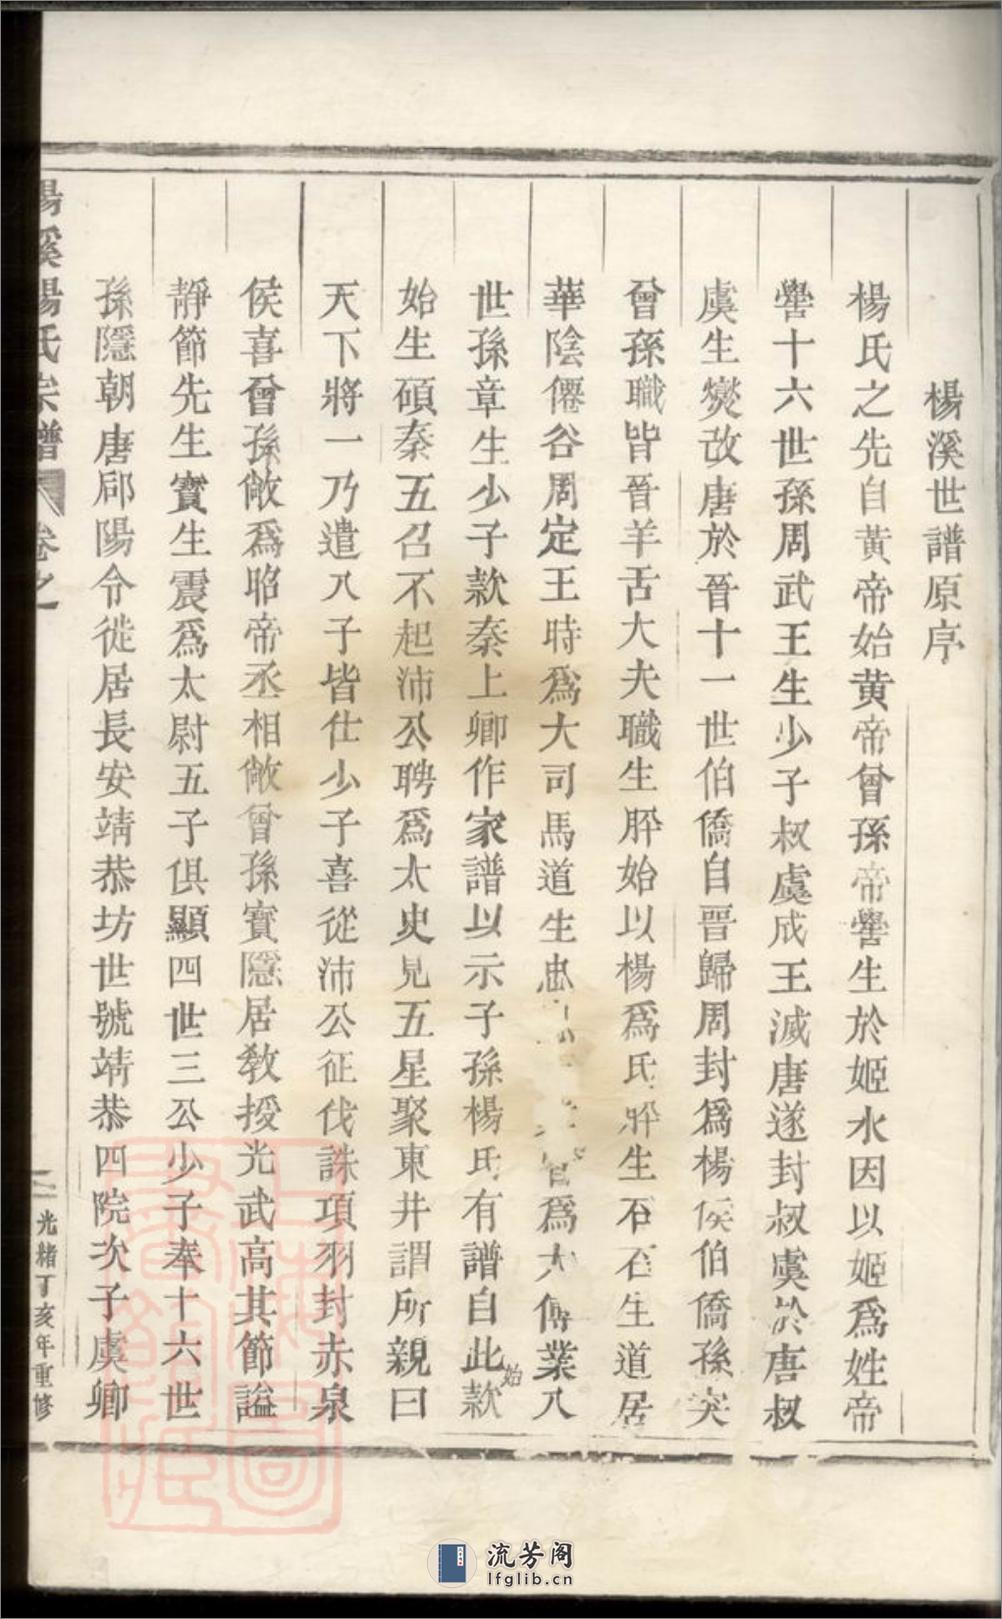 楊溪世譜原序
楊氏之先自黃帝始黃帝曾孫帝嚳生於姬水因以姬爲姓帝
嚳十六世孫周武王生少子叔虞成王滅唐遂封叔虞於唐叔
虞生燮改唐於晉十一世伯僑自晉歸周封爲楊侯伯僑孫突
曾孫職皆晉羊舌大夫職生肸始以楊爲氏肸生石石生道居
華陰僊谷周定王時爲大司馬道生忠爲大傅業八
世孫章生少子款秦上卿作家譜以示子孫楊氏有譜自此始款
始生碩秦五召不起沛公聘爲太史見五星聚東井謂所親曰
天下將一乃遣八子皆仕少子喜從沛公征伐誅項羽封赤泉
侯喜曾孫敞爲昭帝丞相敞曾孫寳隱居教授光武高其節謚
靜節先生寳生震爲太尉五子俱顯四世三公少子奉十六世
孫隱朝唐郈陽令徙居長安靖恭坊世號靖恭四院次子虞卿
楊溪楊氏宗譜 卷之一
光緒丁亥年重修
流芳阁
lfglib.cn